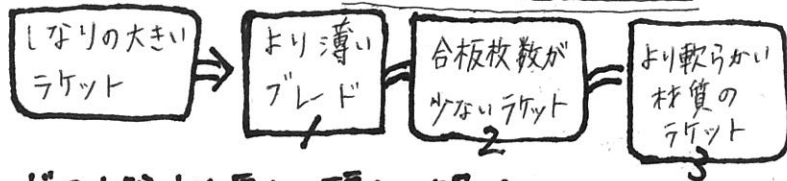 しなりの大きい
ラケット
⇒
より薄い
ブレード
1
=
合板枚数が
少ないラケット
2
=
より軟らかい
材質の
ラケット
3